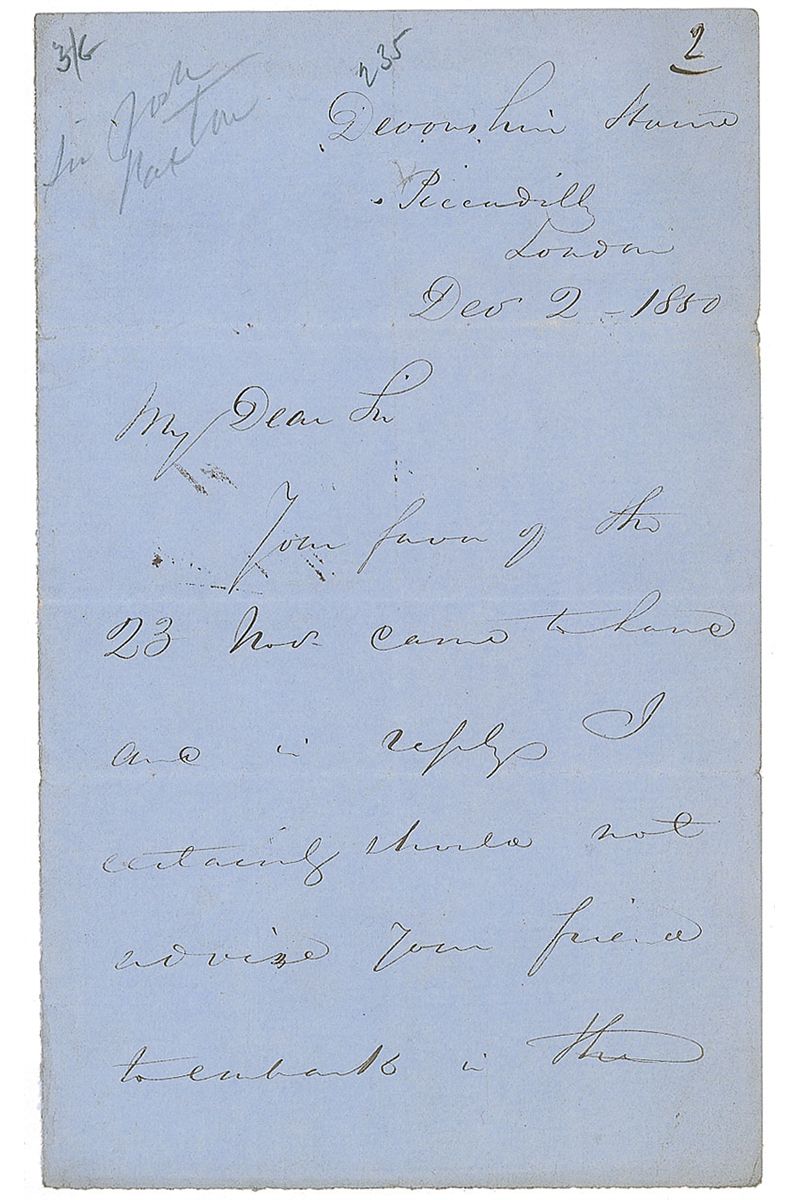 3/6
235
2
Sir Josh
Paxton
Devonshire House
Piccadilly
London
Dec 2 - 1850
My Dear Sir
Your favor of the
23 Nov. came to hand
and in reply I
certainly should not
advise your friend
to embark in the